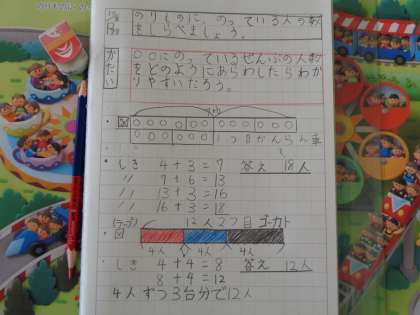 のりものに、のっている人の数
をしらべましょう。
かだい
○○にのっているぜんぶの人数
をどのようにあらわしたらわか
りやすいだろう。
図
1つ目かんらん車
しき 4+3=7 答え 18人
〃 7+6=13
〃 13+3=16
〃 16+3=18
(テープ)
図
12人 2つ目 ゴーカト
4人 4人 4人
しき 4+4=8 答え 12人
8+4=12
4人ずつ3台分で12人